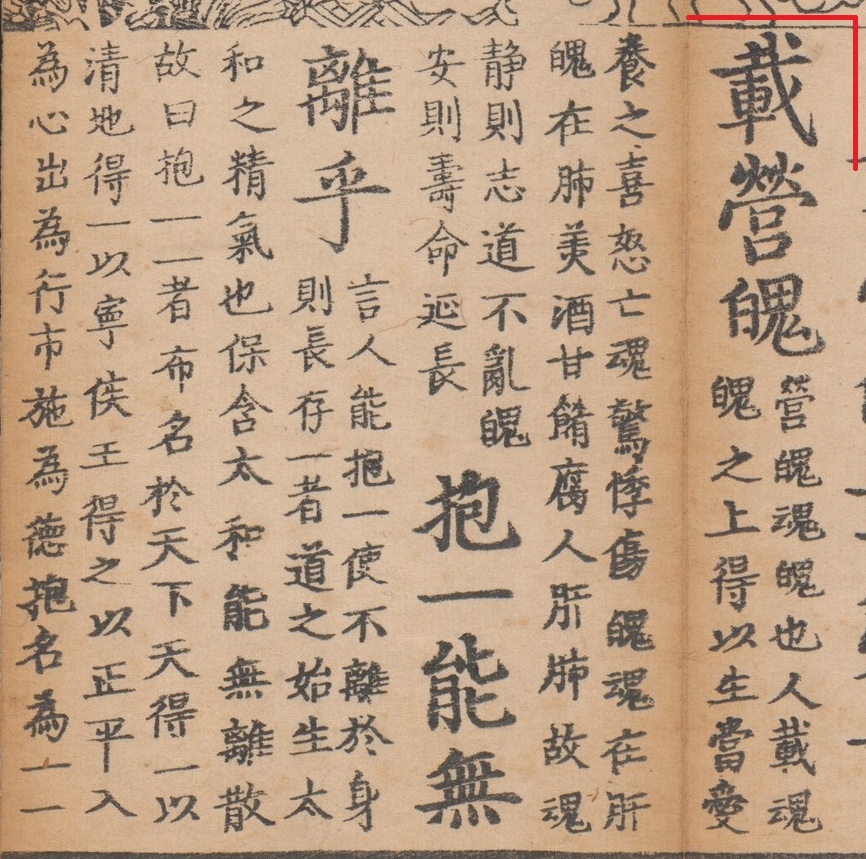 載營魄
營魄魂魄也人載魂
魄之上得以生當愛
養之喜怒亡魂驚悸傷魄魂在肝
魄在肺美酒甘餚腐人肝肺故魂
静則志道不亂魄
安則壽命延長
抱一能無
離乎
言人能抱一使不離於身
則長存一者道之始生太
和之精氣也保含太和能無離散
故曰抱一一者布名於天下天得一以
清地得一以寧侯王得之以正平入
為心出為行市施為德抱名為一一